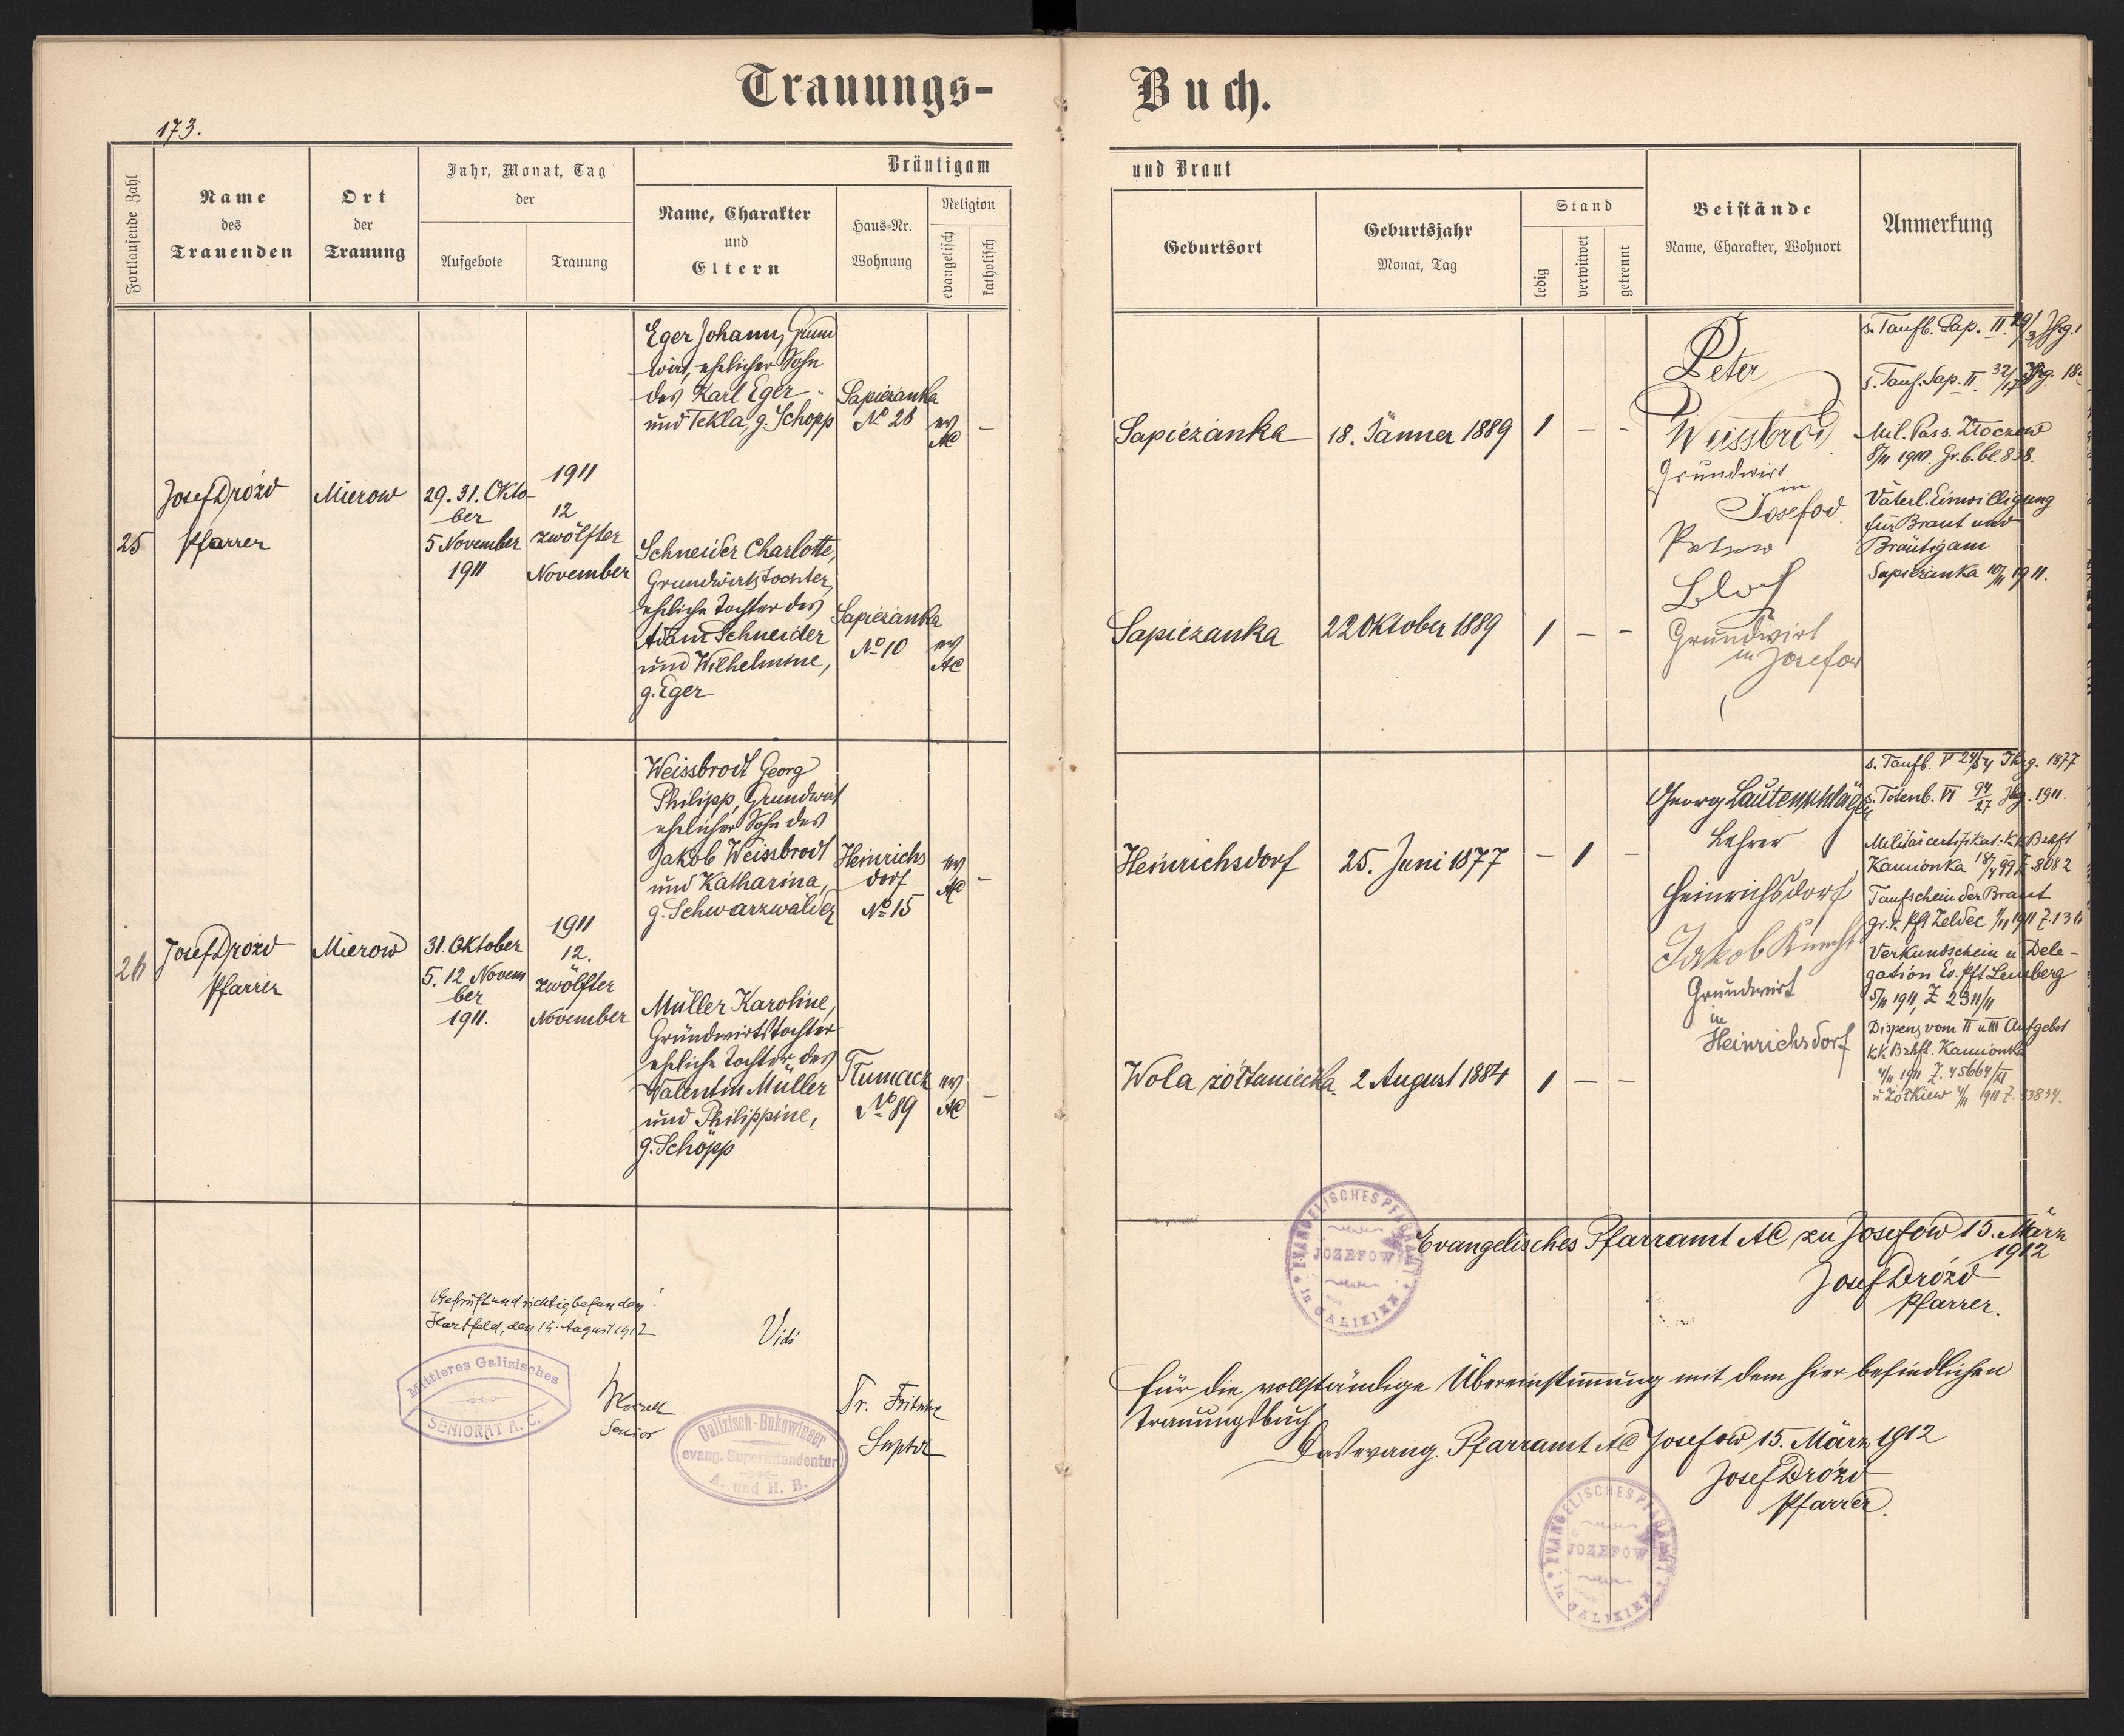 Trauungs-
Buch.
173.
Fortlaufende Zahl
Name
des
Trauenden
Ort
der
Trauung
Jahr, Monat, Tag
der
Aufgebote
Trauung
Bräutigam
Name, Charakter
und
Eltern
Haus-Nr.
Wohnung
Religion
evangelisch
katholisch
und Braut
Geburtsort
Geburtsjahr
Monat, Tag
Stand
ledig
verwitwet
getrennt
Beistände
Name, Charakter, Wohnort
Anmerkung
25
Josef Drózd
Pfarrer
Mierow
29. 31. Okto-
ber
5 November
1911
1911
12
zwölfter
November
Eger Johann, Grund
wirt, ehelicher Sohn
des Karl Eger
und Tekla, g. Schopp
Sapiezanka
No 26
ev
AC
-
Schneider Charlotte,
Grundwirtstochter,
eheliche Tochter des
Adam Schneider
und Wilhelmine,
g. Eger
Sapiezanka
No 10
ev
AC
Sapiezanka
18. Jänner 1889
1 - -
Sapiezanka
22 Oktober 1889
1 - -
Peter
Weissbrod
Grundwirt
in
Josefow
Grundwirt
in Josefow
s. Taufb. Sap. II.
s. Tauf. Sap. II. 32/17 Jhg. 18
Mil. Pass. Złoczow
8/II 1910. Gr. b. bl. 838.
Väterl. Einwilligung
für Braut und
Bräutigam
Sapiezanka 10/11 1911.
26
Josef Drózd
Pfarrer
Mierow
31. Oktober
5. 12 Novem
ber
1911.
1911
12.
zwölfter
November
Weissbrodt Georg
Philipp, Grundwirt
ehelicher Sohn des
Jakob Weissbrodt
und Katharina,
g. Schwarzwälder
Heinrichs
dorf
No 15
ev
AC
-
Müller Karoline,
Grundwirtstochter
eheliche Tochter des
Valentin Müller
und Philippine,
g. Schöpp
Tłumacz
No 89
ev
AC
-
Heinrichsdorf
25. Juni 1877
- 1 -
Wola żółtaniecka
2 August 1884
1 - -
Georg Lautenschläger
Lehrer
Heinrichsdorf
Jakob Knecht
Grundwirt
in
Heinrichsdorf
s. Taufb. VI 24/54 Jhrg. 1877
s. Totenb. VI 94/27 Jhg. 1911.
Militärcertifikat: k k Bzhft
Kamionka 18/4 99 Z. 8082
Taufschein der Braut
Verkundschein u. Dele-
gation Ev. Pft Lemberg
5/11 1911, Z 2311/11
Dispens vom II u III Aufgebot
kk Bzhft. Kamionka
4/11 1911 Z. 45664/XI
u Żółkiew 4/11 1911 Z. 33834.
Geprüft und richtig befunden!
Hartfeld, den 15. August 1912
Mittleres Galizisches
SENIORAT A. C.
Senior
Vidi
Dr. Fritsche
Suptdt
Galizisch-Bukowinaer
evang. Superintendentur
A. und H. B.
EVANGELISCHES PFARRAMT
JOZEFOW
in GALIZIEN
Evangelisches Pfarramt AC zu Josefow 15. März
1912
Josef Drózd
Pfarrer.
Für die vollständige Übereinstimmung mit dem hier befindlichen
Trauungsbuch
Das evang. Pfarramt AC Josefow 15. März 1912
Josef Drózd
Pfarrer.
EVANGELISCHES PFARRAMT
JOZEFOW
in GALIZIEN